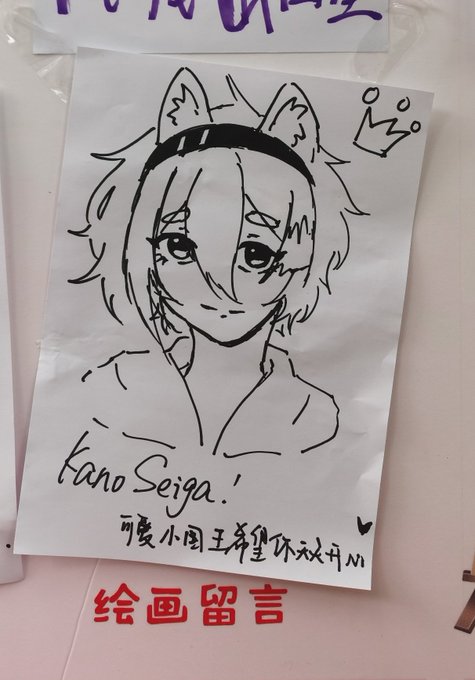 Kano Seiga!
可爱小国王希望你天天开心
绘画留言